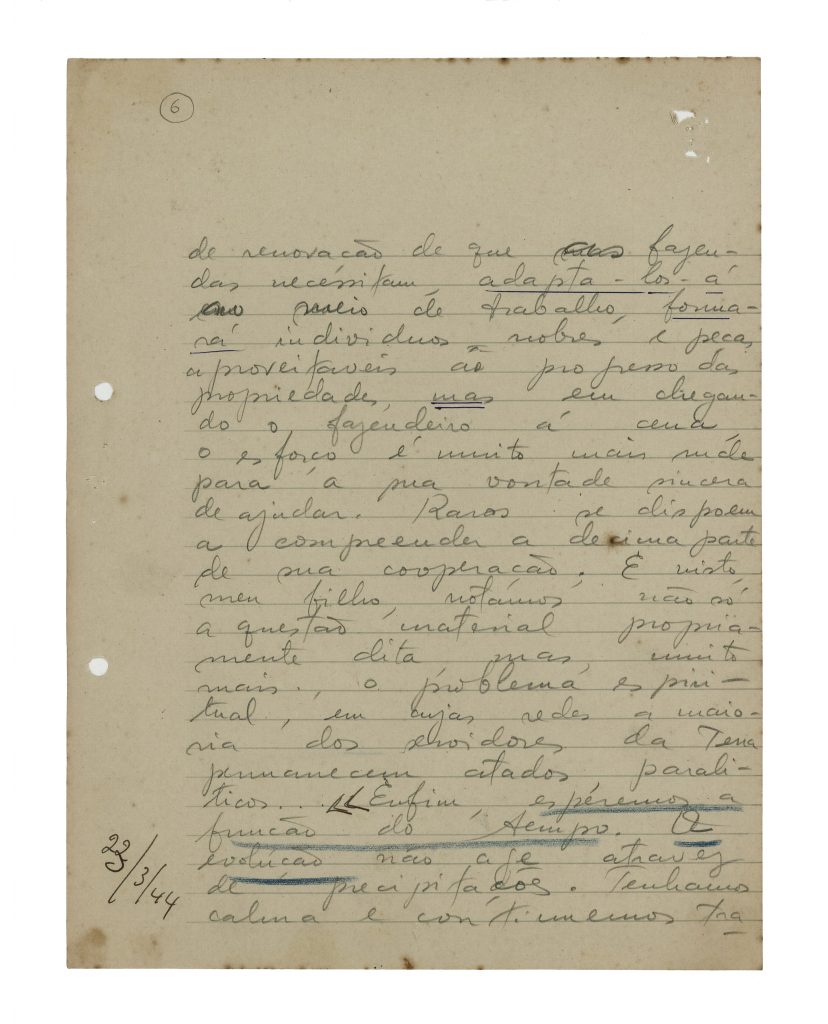 6
de renovação de que as fazen-
das necessitam, adapta-los-á
ao meio de trabalho, forma-
rá individuos nobres e peças
aproveitaveis ao progresso das
propriedades, mas em chegan-
do o fazendeiro á cena,
o esforço é muito mais rude
para a sua vontade sincera
de ajudar. Raros se dispoem
a compreender a decima parte
de sua cooperação. E nisto,
meu filho, notamos não só
a questão material propria-
mente dita, mas, muito
mais, o problema espiri-
tual, em cujas redes a maio-
ria dos servidores da Terra
permanecem atados, parali-
ticos... Enfim, esperemos a
função do tempo. A
evolução não age atravez
de precipitações. Tenhamos
calma e continuemos tra
23/3/44